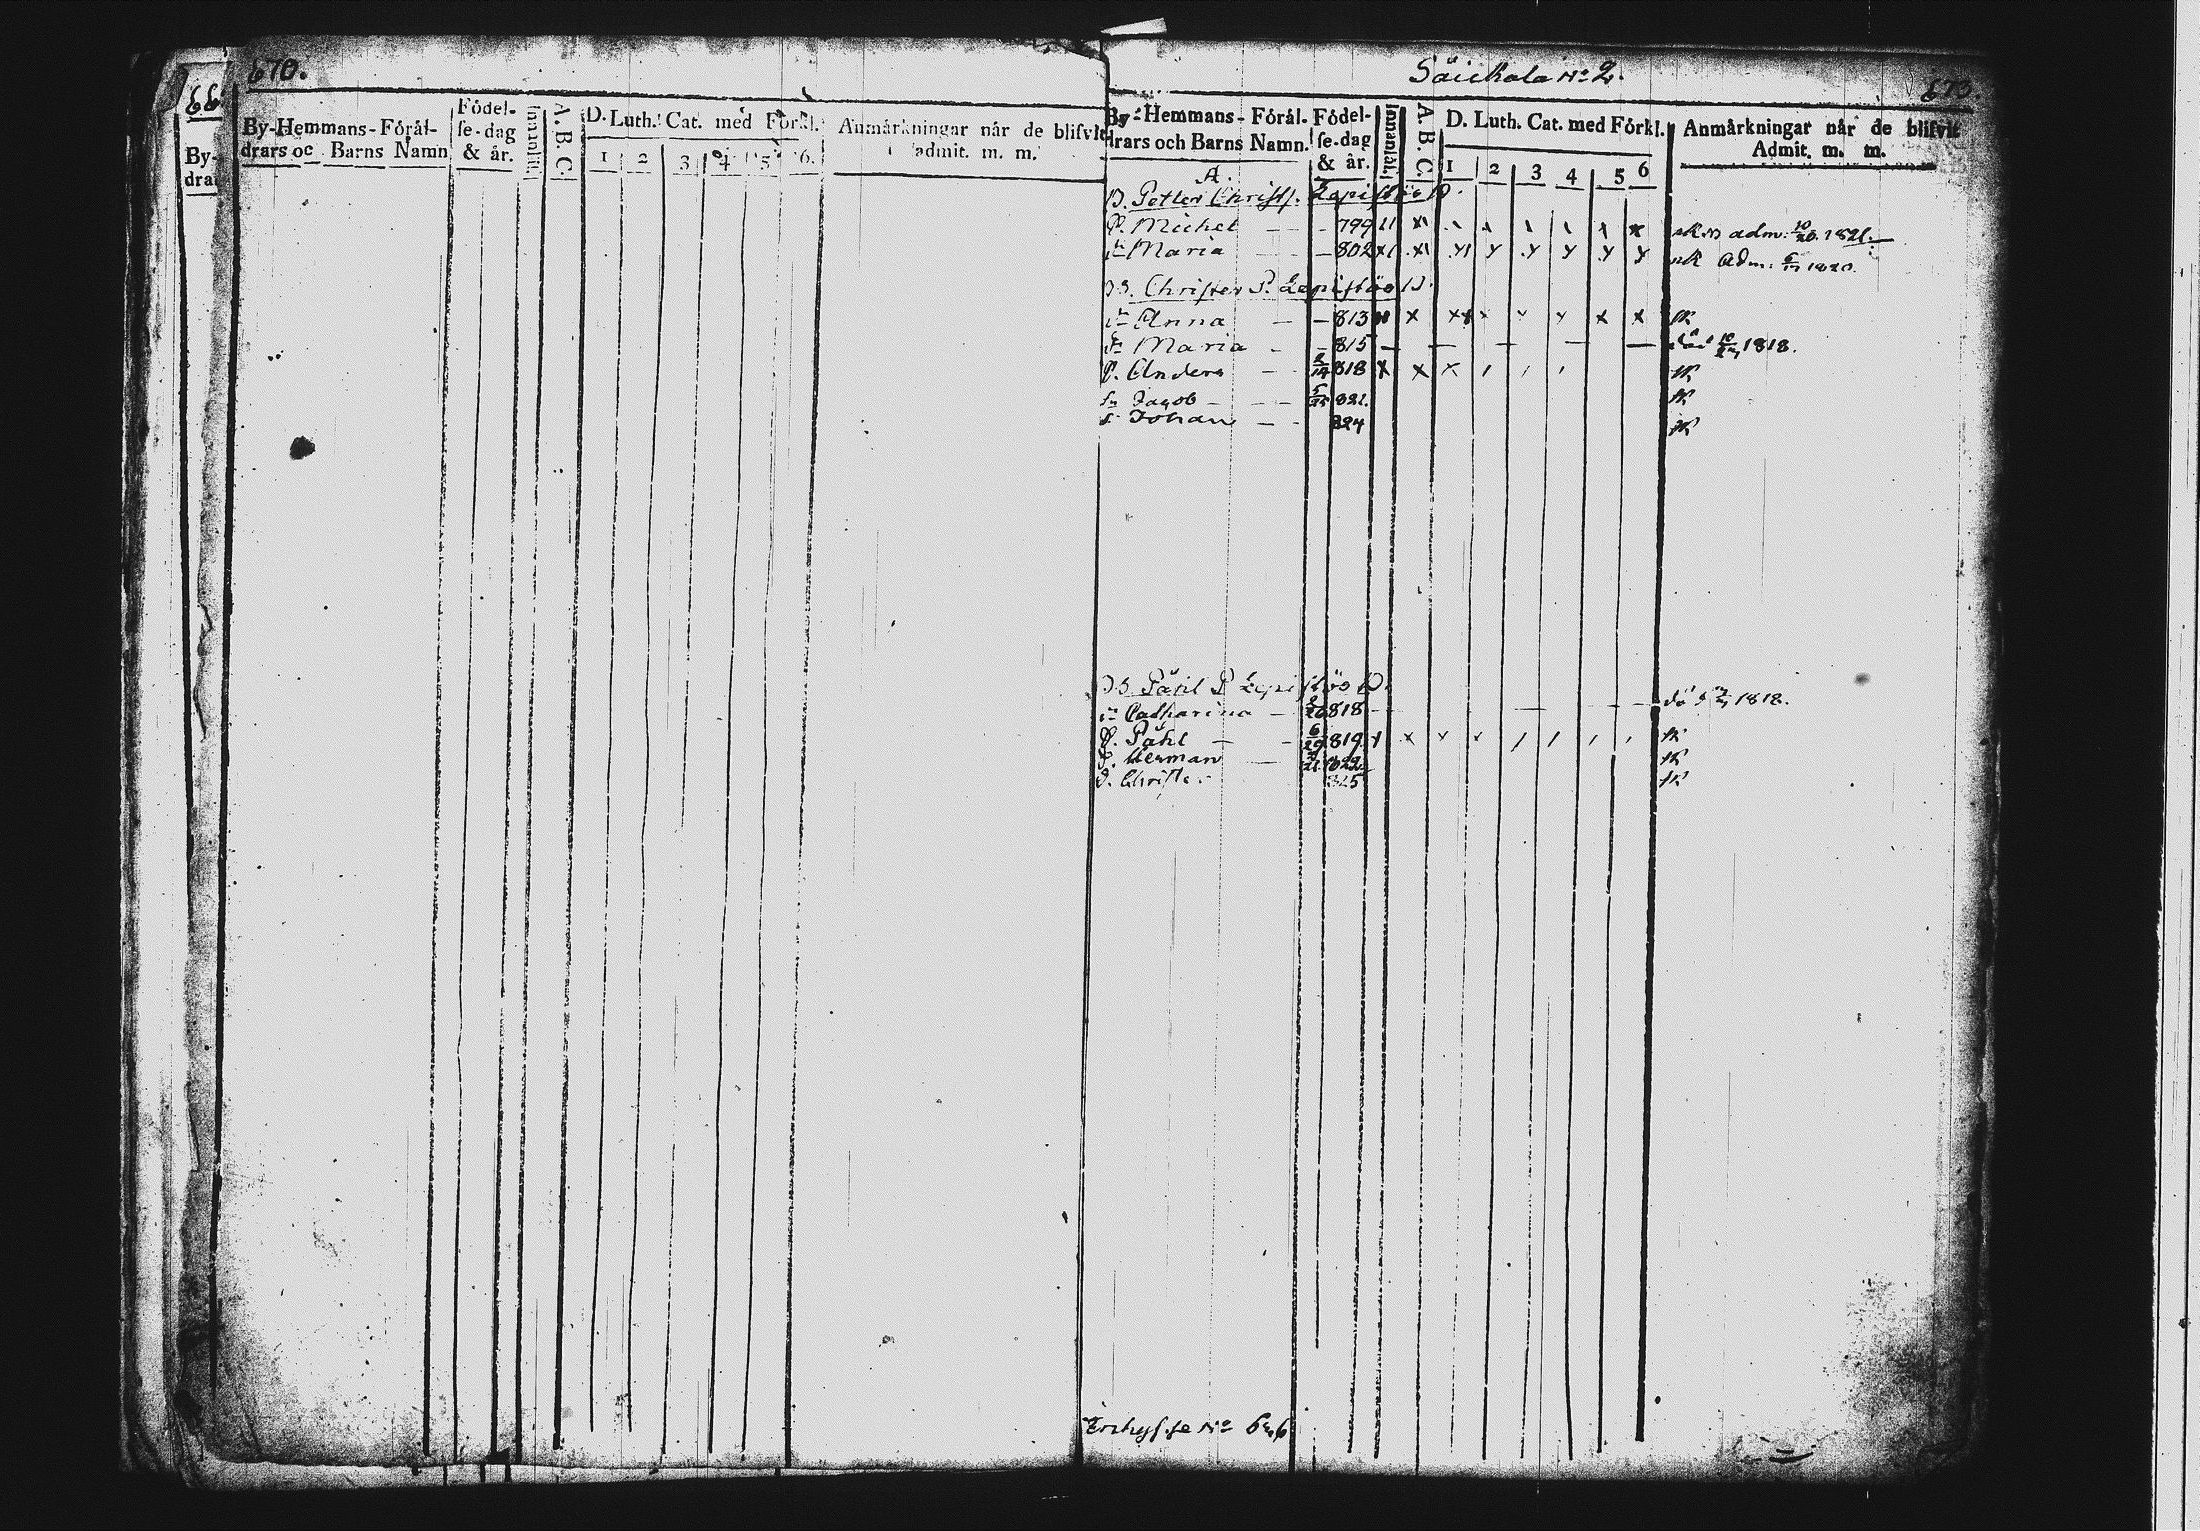 66
By-
dra
670.
By-Hemmans-Föräl-
drars oc Barns Namn
Födel-
se-dag
& år.
Innanläs.
A. B. C.
D. Luth. Cat. med Förkl.
1 2 3 4 5 6.
Anmärkningar når de blifvit
admit. m. m.
Säickala No 2.
By-Hemmans-Föräl-
drars och Barns Namn.
Födel-
se-dag
& år.
Innanläs.
A. B. C.
D. Luth. Cat. med Förkl.
1 2 3 4 5 6
Anmärkningar når de blifvit
Admit. m. m.
A.
B. Petter Christf. Lepistöö B.
S. Michel — — 799 adm. 1821.
Maria — 802 Adm. 1820.
B. Christer P. Lepistöö B.
Anna — — 813
Maria — — 815 — — — — — död 1818.
S. Anders — 818
Jacob — — — 821.
Johan — - 824
B. Påhl P Lepistöö B.
Catharina — 818 död 1818.
S. Påhl — - 819
S. Herman — 822
S. Christer 825
Inhysse No 6